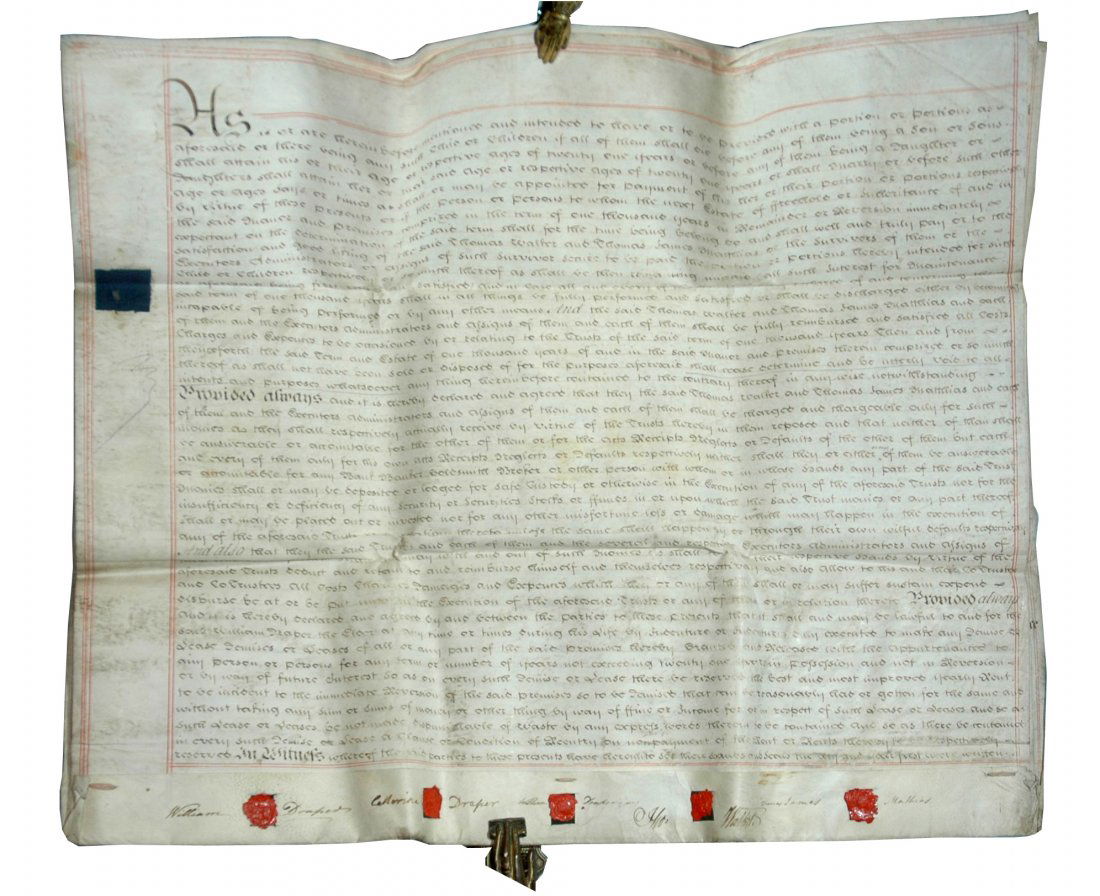 As is or are hereinbefore mentioned and intended to have or to be provided with a portion or portions as
aforesaid or there being any such Child or Children if all of them shall die before any of them being a Son or Sons
shall attain his or their age or respective ages of twenty one years or before any of them being a Daughter or
Daughters shall attain her or their said age or respective ages of twenty one years or shall Marry or before such other
age or ages days or times as shall or may be appointed for payment of his her or their portion or portions respectively
by virtue of these presents or if the person or persons to whom the next Estate of ffreehold or Inheritance of and in
the said Manor and premises comprized in the term of one thousand years in Remainder or Reversion immediately
expectant on the determination of the said term shall for the time being belong do and shall well and truly pay or to the
satisfaction and good liking of the said Thomas Walter and Thomas James Matthias or the Survivors of them or the
Executors Administrators or Assigns of such Survivor secure to be paid the portion or portions hereby intended for such
Child or Children respectively or so much thereof as shall be then remaining unpaid and such Interest for Maintenance
said term of one thousand years shall in all things be fully performed and satisfied or shall be discharged either by becoming
incapable of being performed or by any other means And the said Thomas Walter and Thomas James Matthias and each
of them and the Executors Administrators and Assigns of them and each of them shall be fully reimbursed and satisfied all Costs
Charges and Expences to be occasioned by or relating to the Trusts of the said term of one thousand years Then and from
thenceforth the said Term and Estate of one thousand years of and in the said Manor and premises therein comprized or so much
thereof as shall not have been sold or disposed of for the purposes aforesaid shall cease determine and be utterly void to all
intents and purposes whatsoever any thing hereinbefore contained to the contrary thereof in any wise notwithstanding
Provided always and it is hereby declared and agreed that they the said Thomas Walter and Thomas James Matthias and each
of them and the Executors Administrators and Assigns of them and each of them shall be charged and chargeable only for such
monies as they shall respectively actually receive by virtue of the Trusts hereby in them reposed and that neither of them shall
be answerable or accountable for the other of them or for the Acts Receipts Neglects or Defaults of the other of them but each
and every of them only for his own Acts Receipts Neglects or Defaults respectively neither shall they or either of them be answerable
or accountable for any Bank Banker Goldsmith Broker or other person with whom or in whose hands any part of the said Trust
Monies shall or may be deposited or lodged for safe Custody or otherwise in the Execution of any of the aforesaid Trusts nor for the
insufficiency or deficiency of any Security or Securities Stocks or ffunds in or upon which the said Trust monies or any part thereof
shall or may be placed out or invested nor for any other misfortune loss or damage which may happen in the execution of
any of the aforesaid Trusts the same shall happen through their own wilful defaults respectively
And also that they the said and each of them and the several and respective Executors Administrators and Assigns of
by and out of such Monies as shall their respective Hands by virtue of the
aforesaid Trusts deduct and retain and reimburse himself and themselves respectively and also allow to his and their Co Trustee
and Co Trustees all Costs Charges Damages and Expences which they or any of them shall or may suffer sustain expend
disburse be at or be put unto in the Execution of the aforesaid Trusts or any of them or in relation thereto Provided always
And it is hereby declared and agreed by and between the parties to these presents that it shall and may be lawful to and for the
said William Draper the Elder at any time or times during his life by Indenture or Indentures executed to make any Demise or
Lease Demises or Leases of all or any part of the said premises hereby Granted and Released with the appurtenances to
any person or persons for any term or number of years not exceeding twenty one years in Possession and not in Reversion
or by way of future Interest so as on every such Demise or Lease there be reserved the best and most improved yearly Rent
to be incident to the immediate Reversion of the said premises so to be Demised that can be reasonably had or gotten for the same and
without taking any sum or sums of money or other thing by way of ffine or Income for or in respect of such Lease or Leases and so as
such Lease or Leases be not made dispunishable of Waste by any express words therein to be contained and so as there be contained
in every such Demise or Lease a Clause or Condition of Reentry on nonpayment of the Rent or Rents thereby to be respectively
reserved In Witness whereof the said parties to these presents have hereunto set their hands and seals the day and year first above written
William Draper Catherine Draper William Draper Junr Thos Walter Thomas James Mathias